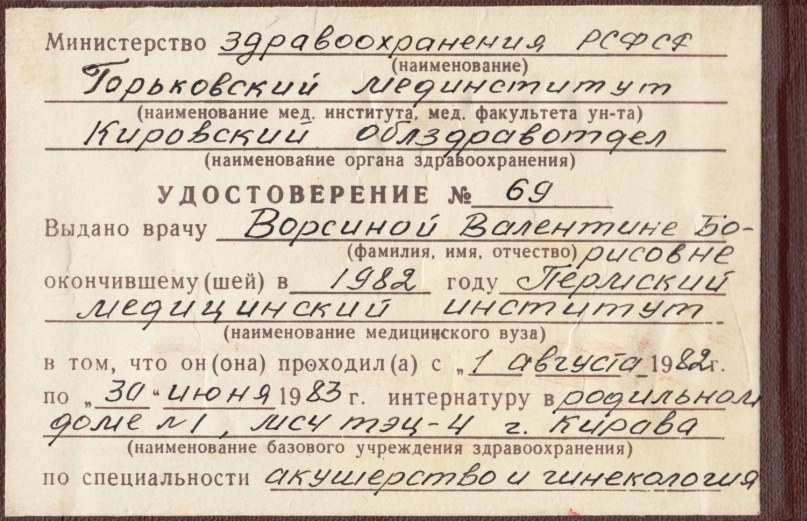 Министерство здравоохранения РСФСР
(наименование)
Горьковский мединститут
(наименование мед. института, мед. факультета ун-та)
Кировский облздравотдел
(наименование органа здравоохранения)
УДОСТОВЕРЕНИЕ № 69
Выдано врачу Ворсиной Валентине Бо-
(фамилия, имя, отчество) рисовне
окончившему (шей) в 1982 году Пермский
медицинский институт
(наименование медицинского вуза)
в том, что он (она) проходил (а) с „1 августа 1982 г.
по „30“ июня 1983 г. интернатуру в родильном
доме №1, МСЧ ТЭЦ-4 г. Кирова
(наименование базового учреждения здравоохранения)
по специальности акушерство и гинекология